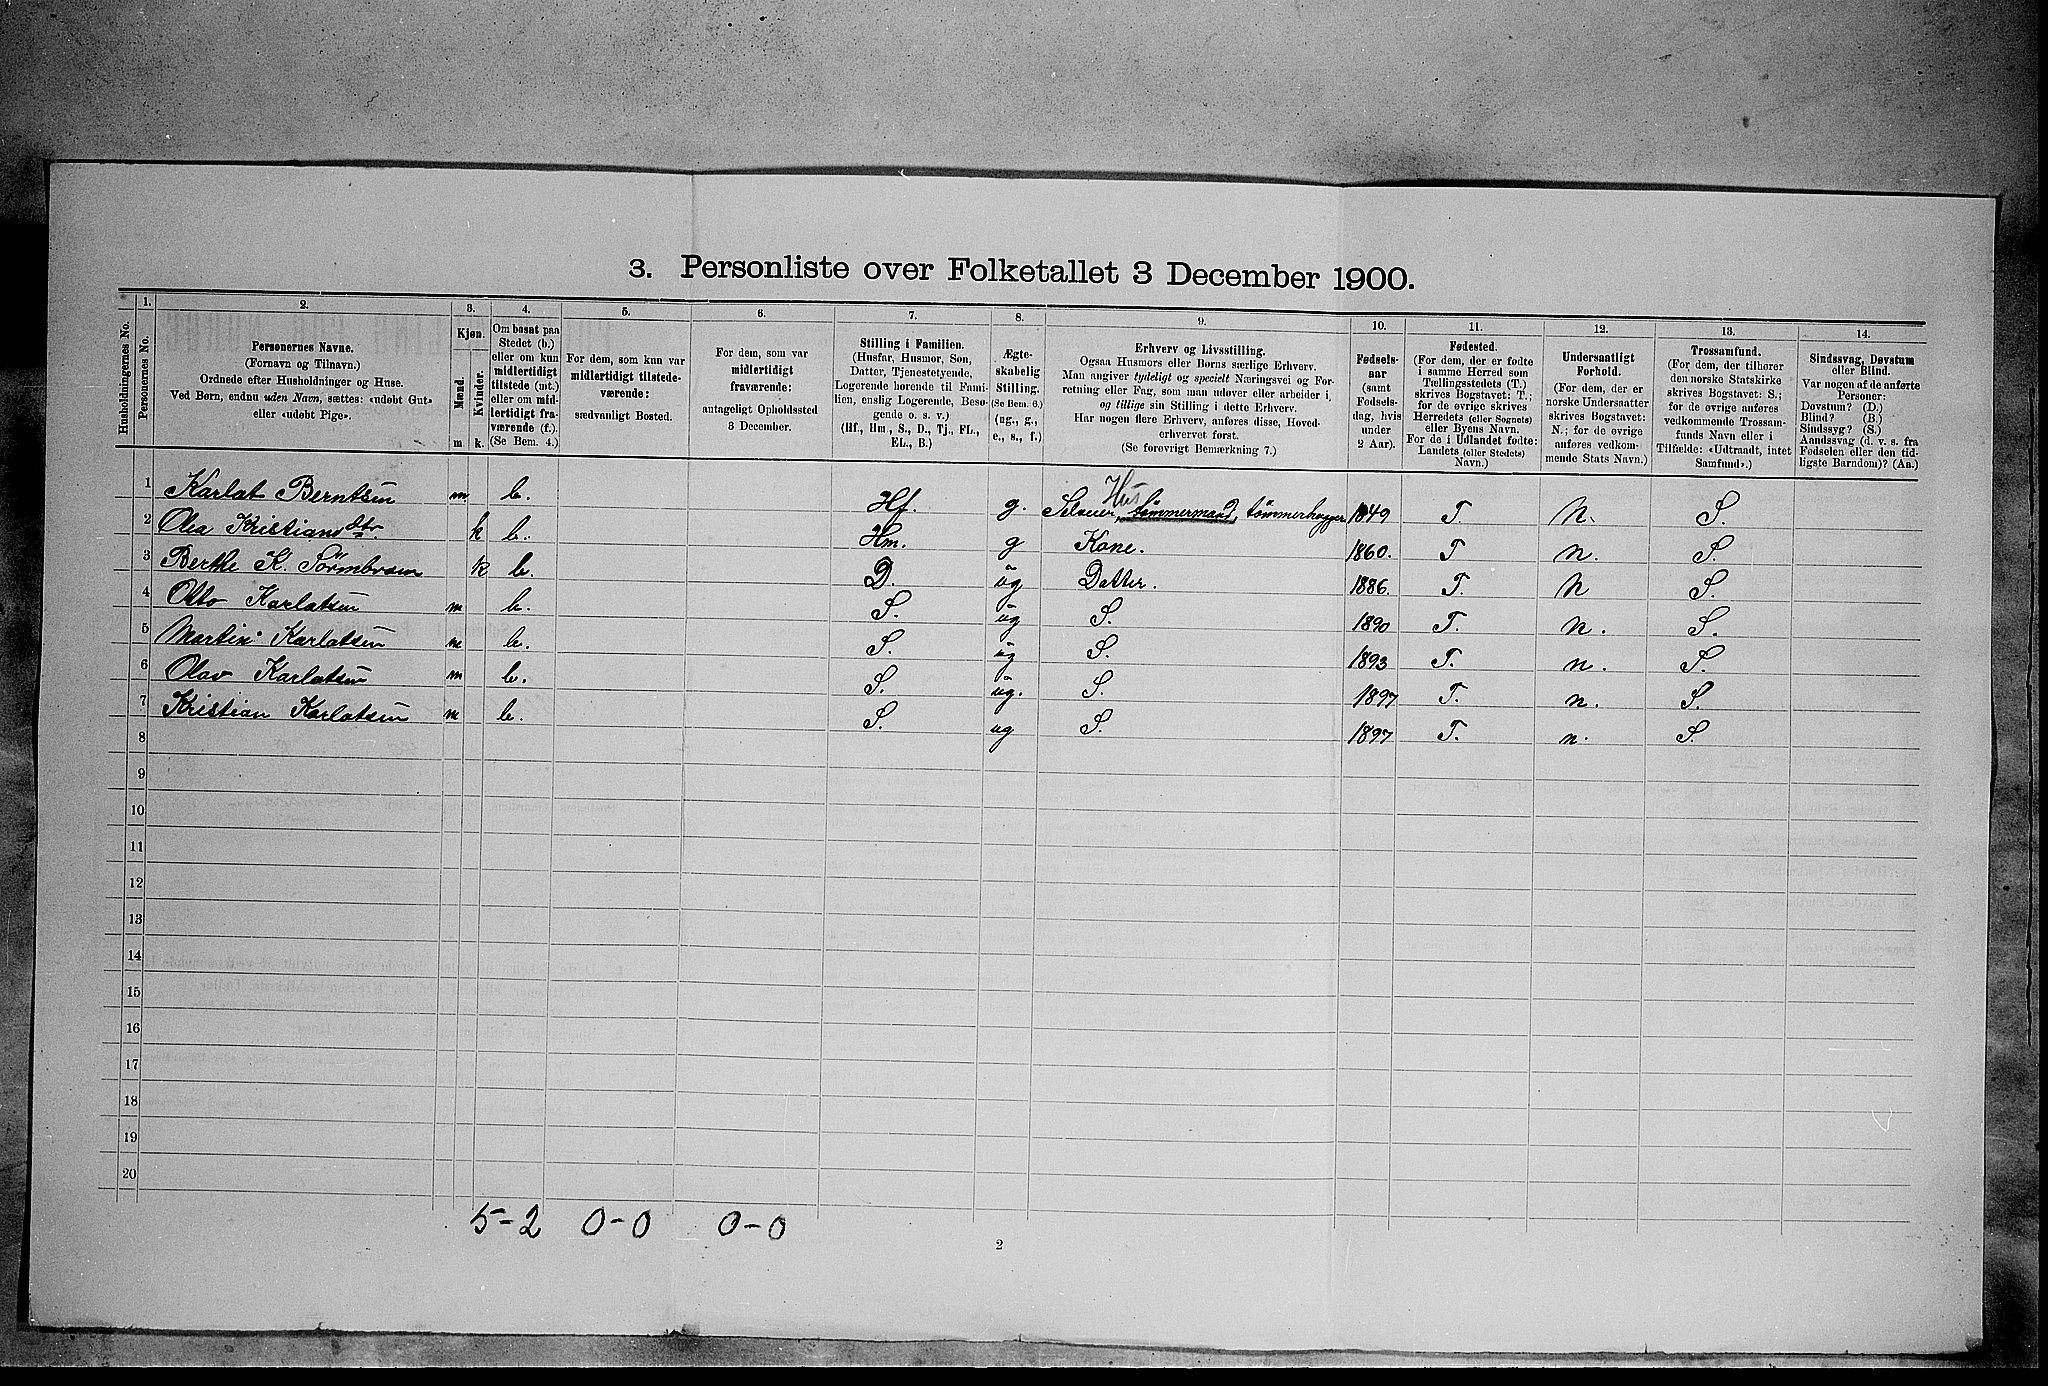 3. Personliste over Folketallet 3 December 1900.
Husholdningernes No.
1.
Personernes No.
2.
Personernes Navne.
(Fornavn og Tilnavn.)
Ordnede efter Husholdninger og Huse.
Ved Børn, endnu uden Navn, sættes: «udøbt Gut»
eller «udøbt Pige».
3.
Kjøn.
Mænd.
Kvinder.
m
k.
4.
Om bosat paa
Stedet (b.)
eller om kun
midlertidigt
tilstede (mt.)
eller om mid-
lertidigt fra-
værende (f.)
(Se Bem. 4.)
5.
For dem, som kun var
midlertidigt tilstede-
værende:
sædvanligt Bosted.
6.
For dem, som var
midlertidigt
fraværende:
antageligt Opholdssted
3 December.
7.
Stilling i Familien.
(Husfar, Husmor, Søn,
Datter, Tjenestetyende,
Logerende hørende til Fami-
lien, enslig Logerende, Besø-
gende o. s. v.)
(Hf., Hm., S., D., Tj., FL.,
EL., B.)
8.
Ægte-
skabelig
Stilling.
(Se Bem. 6.)
(ug., g.,
e., s., f.)
9.
Erhverv og Livsstilling.
Ogsaa Husmors eller Børns særlige Erhverv.
Man angiver tydeligt og specielt Næringsvei og For-
retning eller Fag, som man udøver eller arbeider i,
og tillige sin Stilling i dette Erhverv.
Har nogen flere Erhverv, anføres disse, Hoved-
erhvervet først.
(Se forøvrigt Bemærkning 7.)
10.
Fødsels-
aar
(samt
Fødsels-
dag, hvis
under
2 Aar).
11.
Fødested.
(For dem, der er fødte
i samme Herred som
Tællingsstedets (T.)
skrives Bogstavet: T.;
for de øvrige skrives
Herredets (eller Sognets)
eller Byens Navn.
For de i Udlandet fødte:
Landets (eller Stedets)
Navn.)
12.
Undersaatligt
Forhold.
(For dem, der er
norske Undersaatter
skrives Bogstavet:
N.; for de øvrige
anføres vedkom-
mende Stats Navn.)
13.
Trossamfund.
(For dem, der tilhører
den norske Statskirke
skrives Bogstavet: S.;
for de øvrige anføres
vedkommende Trossam-
funds Navn eller i
Tilfælde: «Udtraadt, intet
Samfund».)
14.
Sindssvag, Døvstum
eller Blind.
Var nogen af de anførte
Personer:
Døvstum? (D.)
Blind? (B.)
Sindssyg? (S.)
Aandssvag (d. v. s. fra
Fødselen eller den tid-
ligste Barndom)? (Aa.)
1 Karlat Berntsen m b. Hf. g. Selveier, Hustømmermand, tømmerhugger 1849 T. N. S.
2 Olea Kristiansdtr. k b. Hm. g Kone. 1860. T n. S.
3 Berthe K. Sørmbrøen k b. D. ug Datter. 1886. T. N S.
4 Otto Karlatsen m b. S. ug S. 1890 T. n. S.
5 Martin Karlatsen m b. S. ug S. 1893 T. n. S.
6 Olav Karlatsen m b. S. ug. S. 1897 T. n. S.
7 Kristian Karlatsen m b. S. ug S. 1897 T. n. S.
8
9
10
11
12
13
14
15
16
17
18
19
20
5-2 0-0 0-0
2